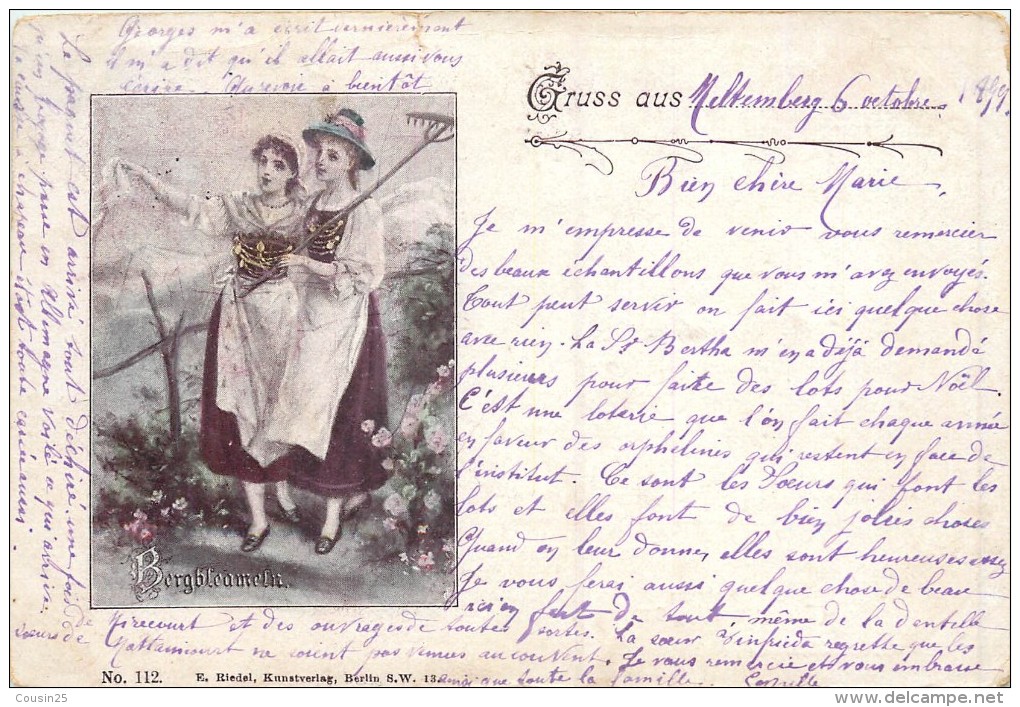 Gruss aus Meltemberg 6 octobre 1899
Bien chère Marie,
Je m'empresse de venir vous remercier
des beaux échantillons que vous m'avez envoyés.
Tout peut servir on fait ici quelque chose
avec rien. La Sr Bertha m'en a déjà demandé
plusieurs pour faire des lots pour Noël.
C'est une loterie que l'on fait chaque année
en faveur des orphelines qui restent en face de
l'institut. Ce sont les Sœurs qui font les
lots et elles font de bien jolies choses
Quand on leur donne, elles sont heureuses
Je vous ferai aussi quelque chose de beau
rien fait de tout même de la dentelle
de Mirecourt et des ouvrages de toutes sortes. La sœur regrette que les
sœurs de Mattaincourt ne soient pas venues au couvent. Je vous remercie et vous embrasse
ainsi que toute la famille. Camille
Georges m'a écrit dernièrement
il m'a dit qu'il allait aussi vous
écrire. Au revoir à bientôt
Le paquet est arrivé tout déchiré une fois
qu'en Allemagne voilà ce qui arrive
château était toute
Bergbleameln.
No. 112. E. Riedel, Kunstverlag, Berlin S.W. 13.
Cousin25
delcampe.net